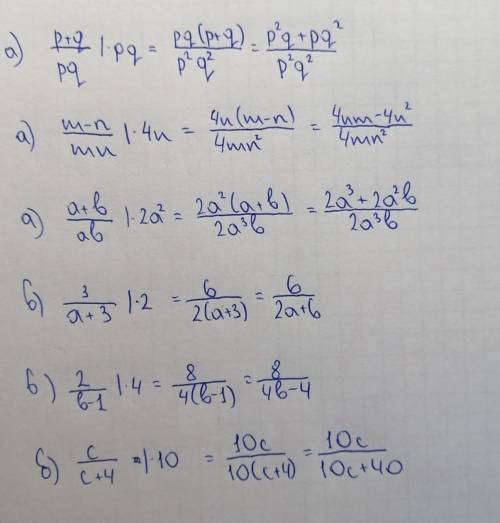 а) (p+q)/(pq) |·pq = (pq(p+q))/(p²q²) = (p²q+pq²)/(p²q²)
а) (m-n)/(mn) |·4n = (4n(m-n))/(4mn²) = (4nm-4n²)/(4mn²)
а) (a+b)/(ab) |·2a² = (2a²(a+b))/(2a³b) = (2a³+2a²b)/(2a³b)
в) 3/(a+3) |·2 = 6/(2(a+3)) = 6/(2a+6)
в) 2/(b-1) |·4 = 8/(4(b-1)) = 8/(4b-4)
б) c/(c+4) = |·10 = 10c/(10(c+4)) = 10c/(10c+40)